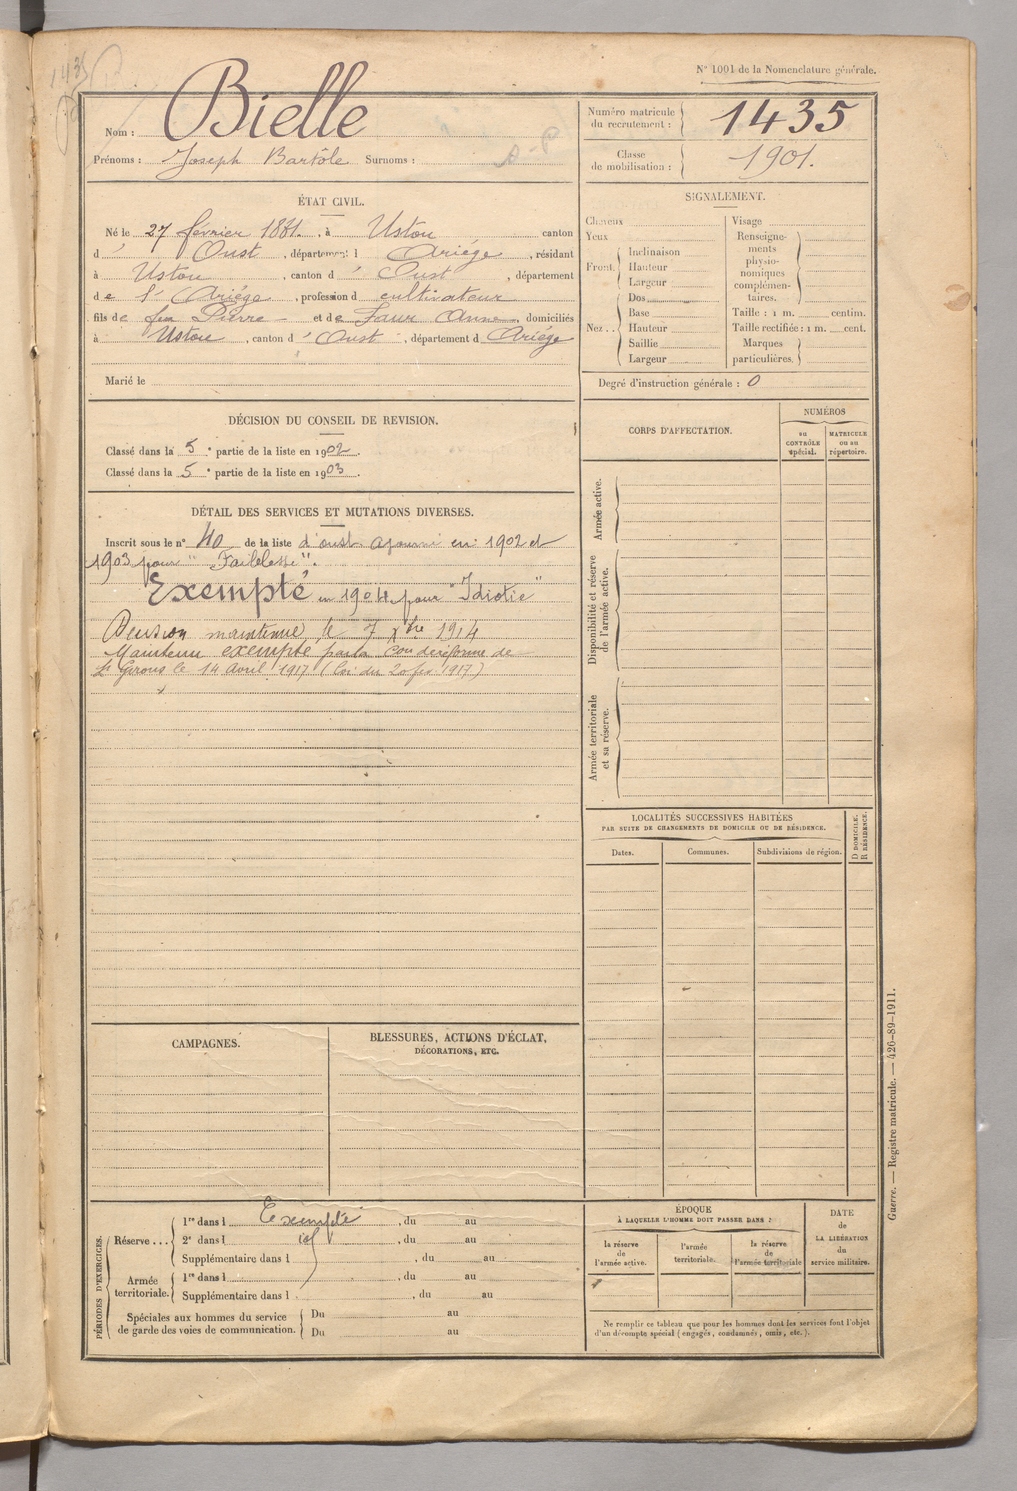 1435
N° 1001 de la Nomenclature générale.
Nom : Bielle
Prénoms : Joseph Bartôle Surnoms :
Numéro matricule du recrutement : 1435
Classe de mobilisation : 1901.
ÉTAT CIVIL.
Né le 27 février 1881, à Ustou canton
d' Oust, département d Ariége, résidant
à Ustou, canton d' Oust, département
de l' Ariége, profession d cultivateur
fils de feu Pierre et de Faur Anne, domiciliés
à Ustou, canton d' Oust, département d Ariége
Marié le
SIGNALEMENT.
Cheveux
Yeux
Front.
Inclinaison
Hauteur
Largeur
Nez..
Dos
Base
Hauteur
Saillie
Largeur
Visage
Renseigne-
ments
physio-
nomiques
complémen-
taires.
Taille : 1 m. centim.
Taille rectifiée : 1 m. cent.
Marques
particulières.
Degré d'instruction générale : 0
DÉCISION DU CONSEIL DE REVISION.
Classé dans la 5e partie de la liste en 1902.
Classé dans la 5e partie de la liste en 1903.
DÉTAIL DES SERVICES ET MUTATIONS DIVERSES.
Inscrit sous le n° 40 de la liste d'oust ajourné en 1902 et
1903 pour "Faiblesse".
Exempté en 1904 pour "Idiotie"
Décision maintenue le 7 Xbre 1914
Maintenu exempté par la Con de réforme de
St Girons le 14 avril 1917 (loi du 20 fév. 1917)
CORPS D'AFFECTATION.
NUMÉROS
au
CONTRÔLE
spécial.
MATRICULE
ou au
répertoire.
Armée active.
Disponibilité et réserve
de l'armée active.
Armée territoriale
et sa réserve.
LOCALITÉS SUCCESSIVES HABITÉES
PAR SUITE DE CHANGEMENTS DE DOMICILE OU DE RÉSIDENCE.
Dates.
Communes.
Subdivisions de région.
D DOMICILE.
R RÉSIDENCE.
CAMPAGNES.
BLESSURES, ACTIONS D'ÉCLAT,
DÉCORATIONS, ETC.
PÉRIODES D'EXERCICES.
Réserve...
1re dans l Exempté, du au
2e dans l id, du au
Supplémentaire dans l , du au
Armée
territoriale.
1re dans l , du au
Supplémentaire dans l , du au
Spéciales aux hommes du service
de garde des voies de communication.
Du au
Du au
ÉPOQUE
À LAQUELLE L'HOMME DOIT PASSER DANS :
la réserve
de
l'armée active.
l'armée
territoriale.
la réserve
de
l'armée territoriale
DATE
de
LA LIBÉRATION
du
service militaire.
Ne remplir ce tableau que pour les hommes dont les services font l'objet
d'un décompte spécial (engagés, condamnés, omis, etc.).
Guerre. — Registre matricule. — 426-89-1911.